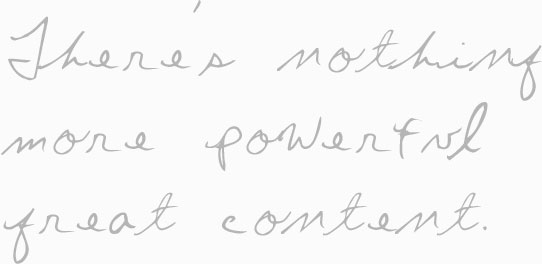 There's nothing
more powerful
great content.